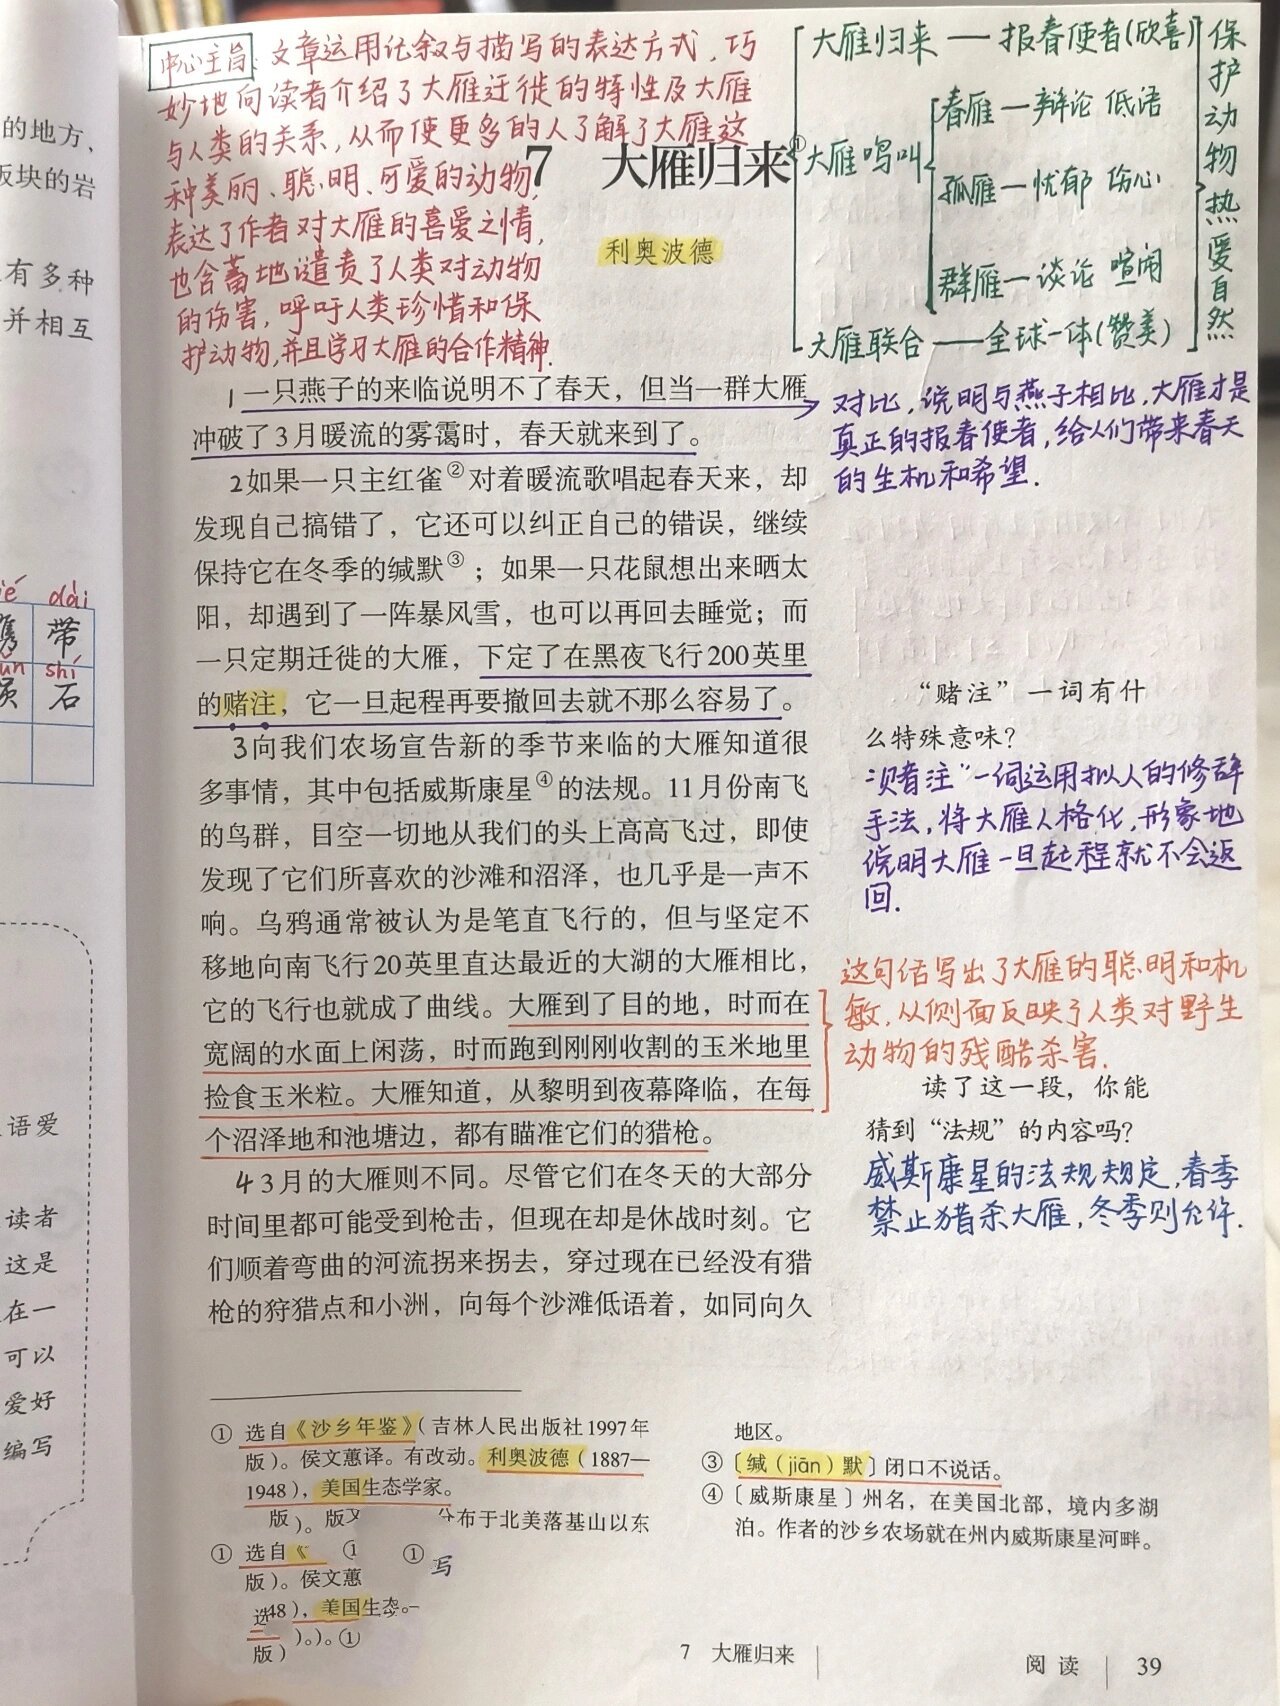 的地方，
板块的岩
有多种
并相互
dài
带
shí
石
语爱
读者
这是
在一
可以
爱好
编写
中心主旨：文章运用记叙与描写的表达方式，巧
妙地向读者介绍了大雁迁徙的特性及大雁
与人类的关系，从而使更多的人了解了大雁这
种美丽、聪明、可爱的动物，
表达了作者对大雁的喜爱之情，
也含蓄地谴责了人类对动物
的伤害，呼吁人类珍惜和保
护动物，并且学习大雁的合作精神.
大雁归来 — 报春使者(欣喜)
大雁鸣叫
春雁 — 辩论 低语
孤雁 — 忧郁 伤心
群雁 — 谈论 喧闹
大雁联合 — 全球一体(赞美)
保护动物热爱自然
7 大雁归来①
利奥波德
1一只燕子的来临说明不了春天，但当一群大雁
冲破了3月暖流的雾霭时，春天就来到了。
对比，说明与燕子相比，大雁才是
真正的报春使者，给人们带来春天
的生机和希望.
2如果一只主红雀②对着暖流歌唱起春天来，却
发现自己搞错了，它还可以纠正自己的错误，继续
保持它在冬季的缄默③；如果一只花鼠想出来晒太
阳，却遇到了一阵暴风雪，也可以再回去睡觉；而
一只定期迁徙的大雁，下定了在黑夜飞行200英里
的赌注，它一旦起程再要撤回去就不那么容易了。
“赌注”一词有什
么特殊意味？
“赌注”一词运用拟人的修辞
手法，将大雁人格化，形象地
说明大雁一旦起程就不会返
回.
3向我们农场宣告新的季节来临的大雁知道很
多事情，其中包括威斯康星④的法规。11月份南飞
的鸟群，目空一切地从我们的头上高高飞过，即使
发现了它们所喜欢的沙滩和沼泽，也几乎是一声不
响。乌鸦通常被认为是笔直飞行的，但与坚定不
移地向南飞行20英里直达最近的大湖的大雁相比，
它的飞行也就成了曲线。大雁到了目的地，时而在
宽阔的水面上闲荡，时而跑到刚刚收割的玉米地里
捡食玉米粒。大雁知道，从黎明到夜幕降临，在每
个沼泽地和池塘边，都有瞄准它们的猎枪。
这句话写出了大雁的聪明和机
敏，从侧面反映了人类对野生
动物的残酷杀害.
读了这一段，你能
猜到“法规”的内容吗？
威斯康星的法规规定，春季
禁止猎杀大雁，冬季则允许.
4 3月的大雁则不同。尽管它们在冬天的大部分
时间里都可能受到枪击，但现在却是休战时刻。它
们顺着弯曲的河流拐来拐去，穿过现在已经没有猎
枪的狩猎点和小洲，向每个沙滩低语着，如同向久
① 选自《沙乡年鉴》（吉林人民出版社1997年
版）。侯文蕙译。有改动。利奥波德（1887—
1948），美国生态学家。
版）。版 分布于北美落基山以东
① 选自《 ① ① 写
版）。侯文蕙
选48），美国生态。
版） ）。）。①
地区。
③〔缄（jiān）默〕闭口不说话。
④〔威斯康星〕州名，在美国北部，境内多湖
泊。作者的沙乡农场就在州内威斯康星河畔。
7 大雁归来
阅读 39